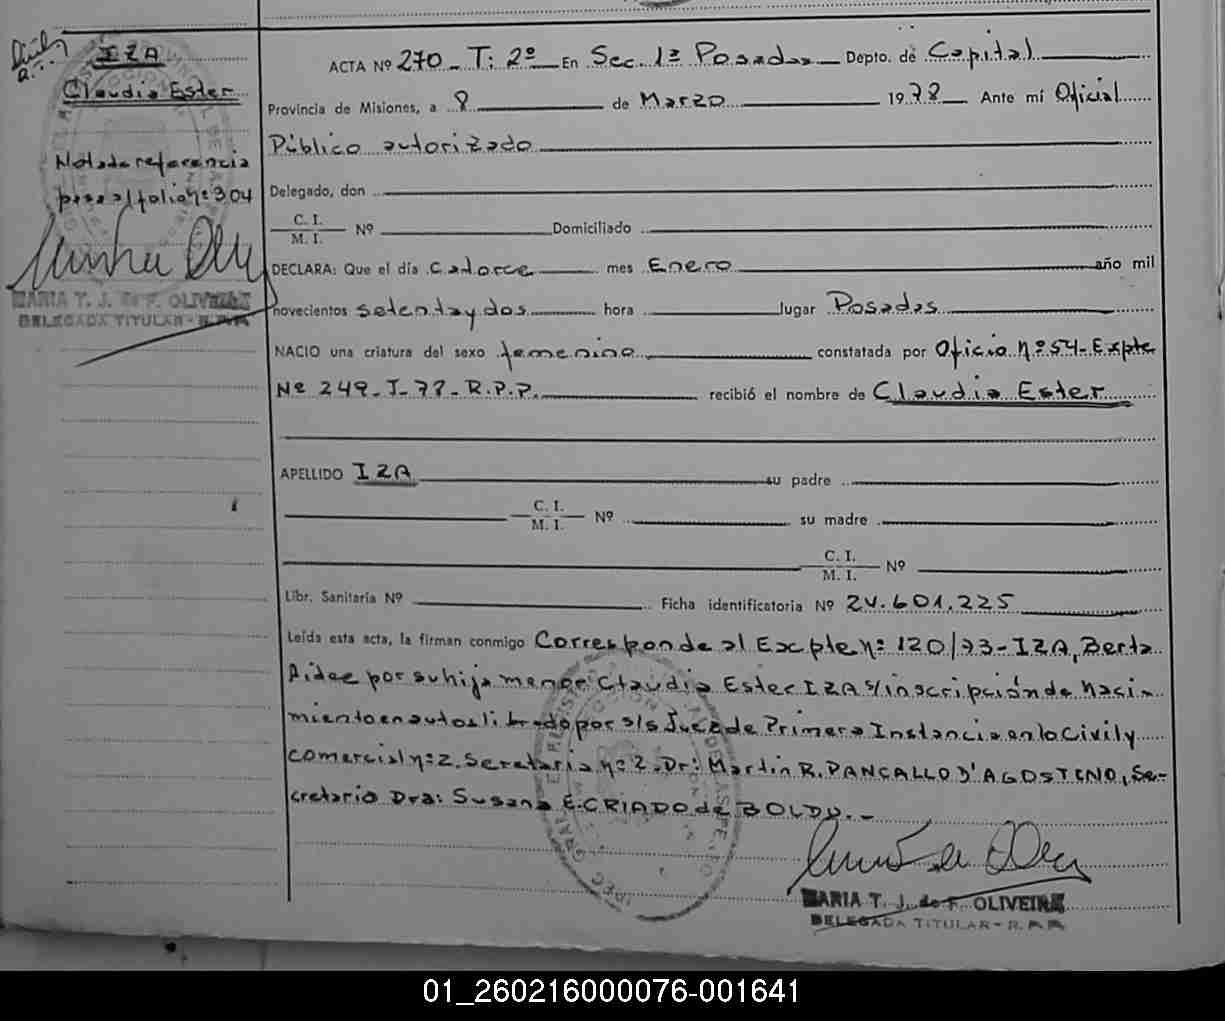 IZA
Claudia Ester
Nota de referencia
pasa al folio nº 304
MARIA T. J. de F. OLIVEIRA
DELEGADA TITULAR - R.P.P.
ACTA Nº 270 - T: 2º En Sec. 1ª Posadas Depto. de Capital
Provincia de Misiones, a 8 de Marzo 1978 Ante mí Oficial
Público autorizado
Delegado, don
C. I.
M. I. Nº Domiciliado
DECLARA: Que el día catorce mes Enero año mil
novecientos setenta y dos hora lugar Posadas
NACIO una criatura del sexo femenino constatada por Oficio Nº 54 - Expte
Nº 249 - I - 77 - R.P.P. recibió el nombre de Claudia Ester
APELLIDO IZA su padre
C. I.
M. I. Nº su madre
C. I.
M. I. Nº
Libr. Sanitaria Nº Ficha identificatoria Nº 24.601.225
Leída esta acta, la firman conmigo Corresponde al Excpte nº: 120/73 - IZA, Berta
Aidee por su hija menor Claudia Ester IZA s/inscripción de Naci-
miento en autos librado por s/s Juez de Primera Instancia en lo Civil y
comercial nº: 2. Secretaria nº: 2. Dr: Martin R. PANCALLO D'AGOSTINO, Se-
cretario Dra: Susana E. CRIADO de BOLDU. -
MARIA T. J. de F. OLIVEIRA
DELEGADA TITULAR - R.P.P.
01_260216000076-001641